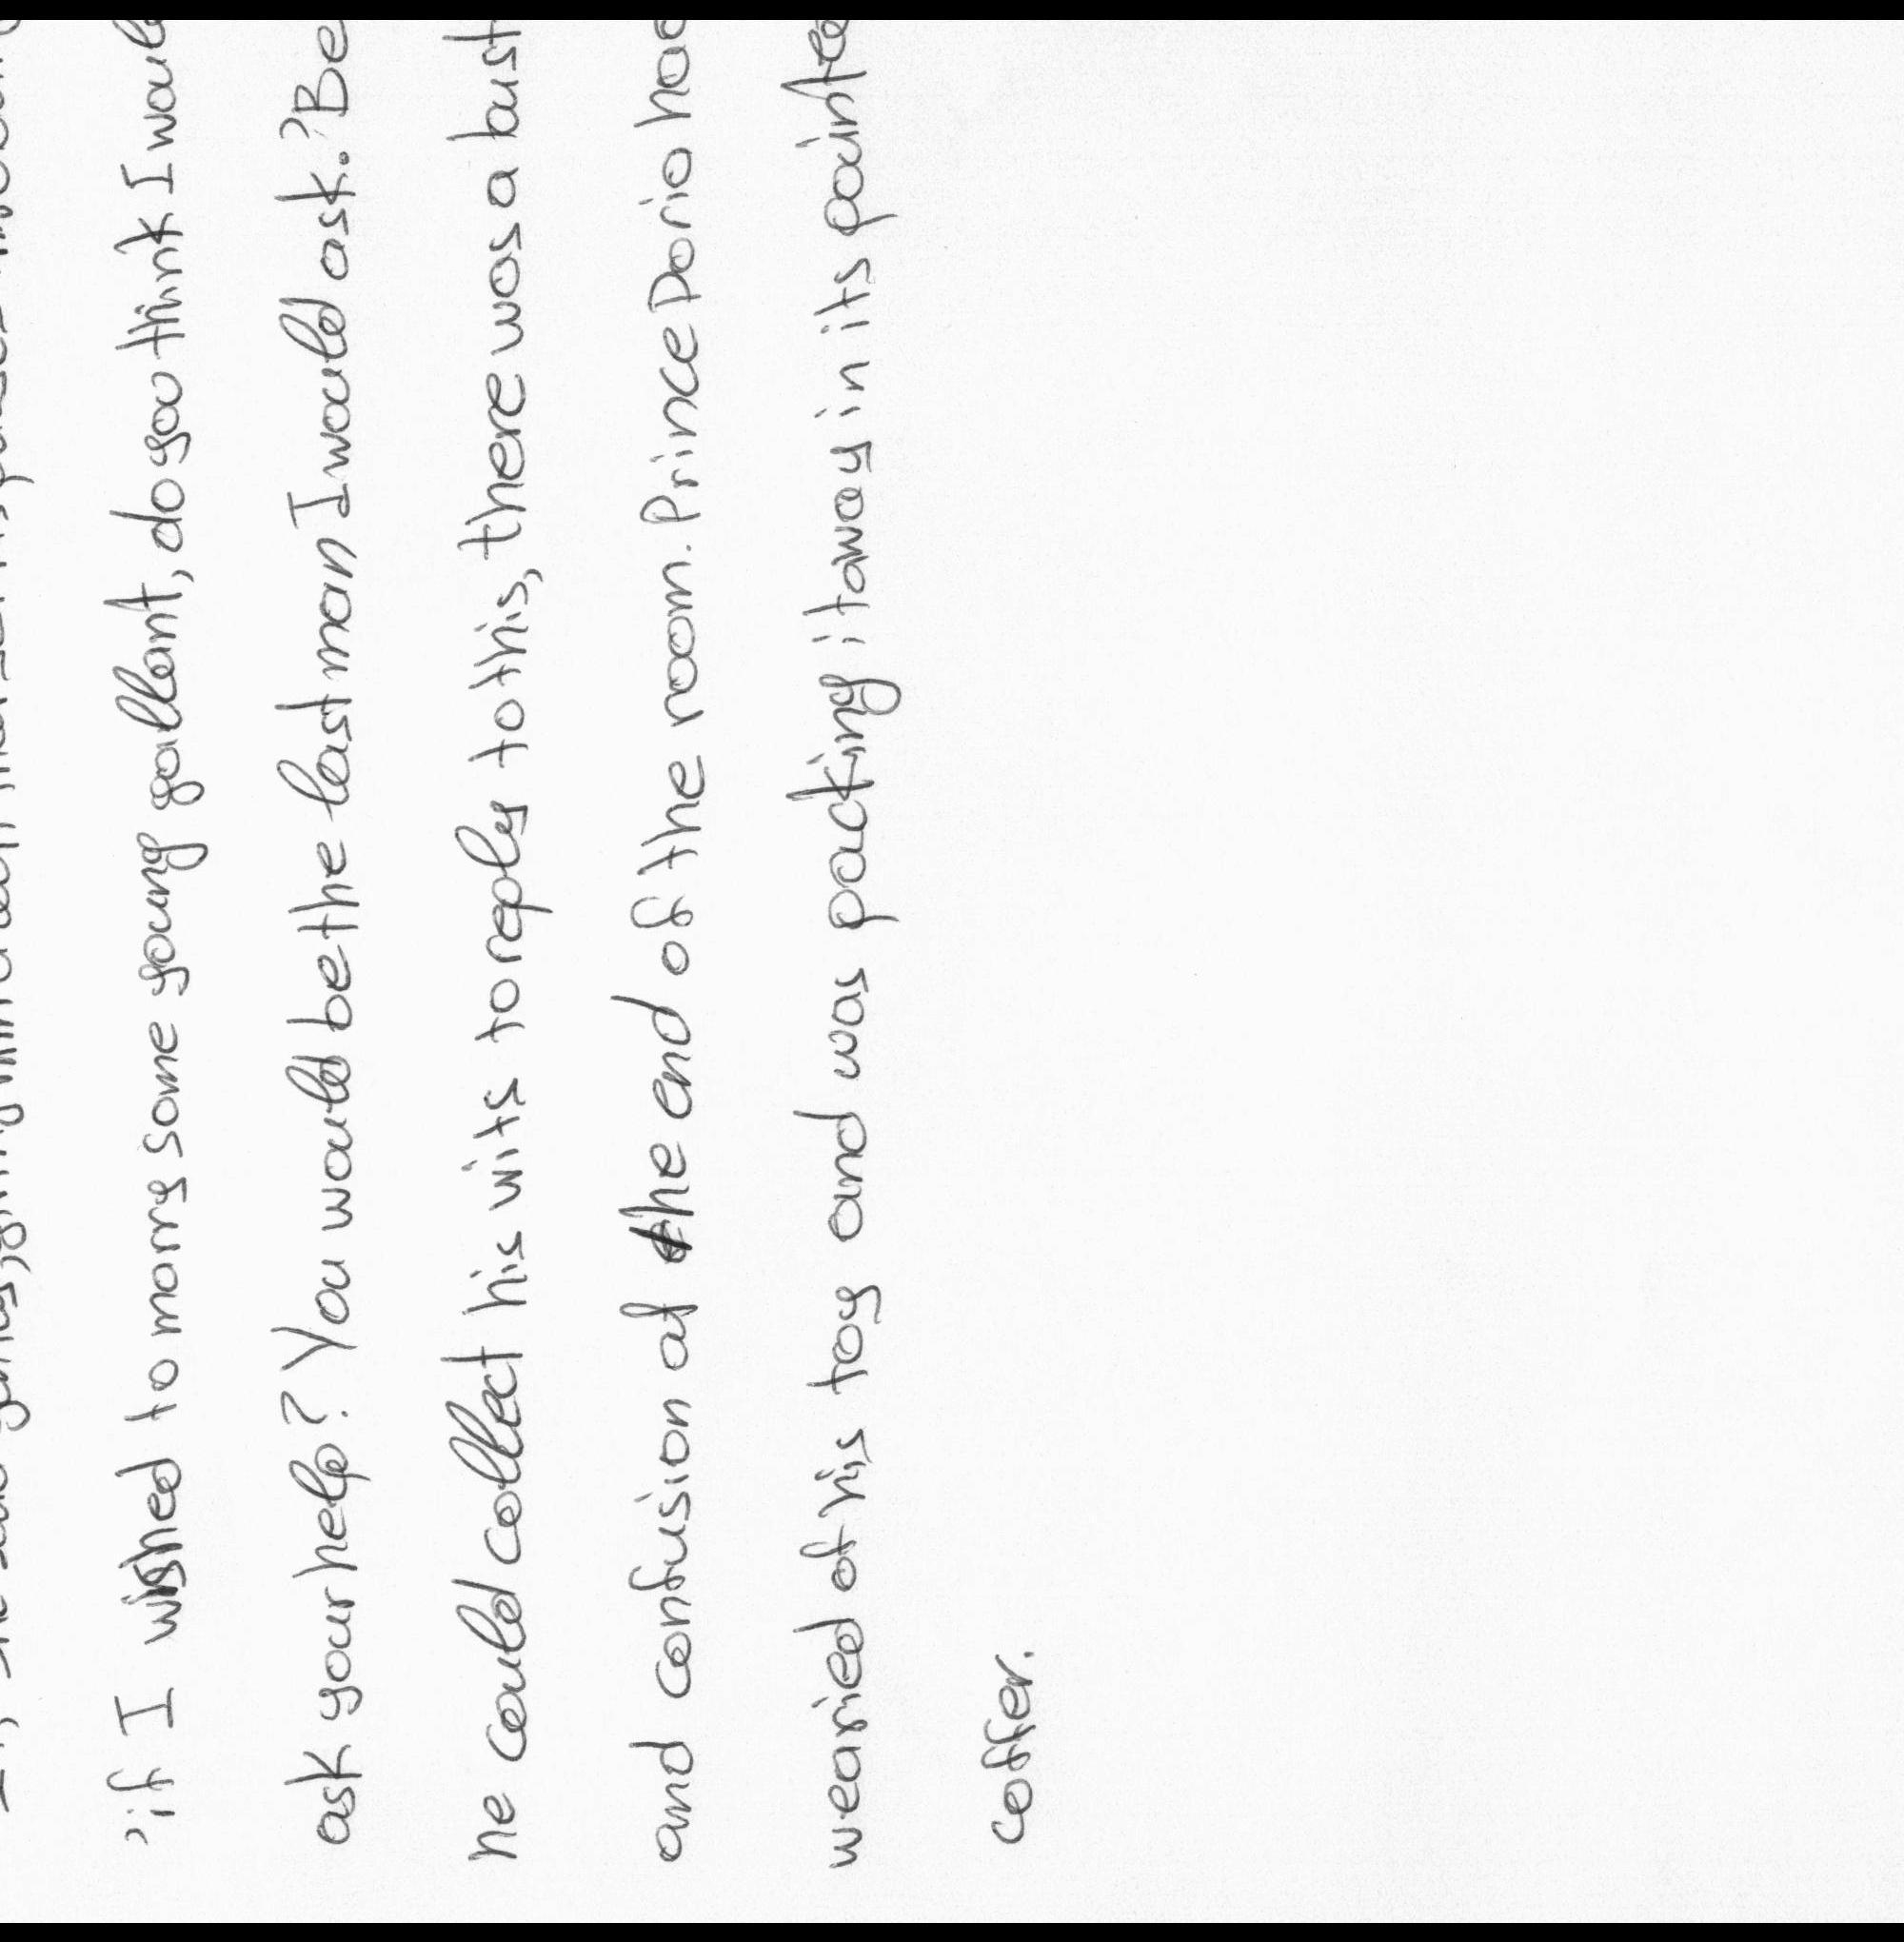 'if I wished to marry some young gallant, do you think I woul
ask your help? You would be the last man I would ask.' Be
he could collect his wits to reply to this, there was a bust
and confusion at the end of the room. Prince Dario had
wearied of his toy and was packing it away in its painte
coffer.